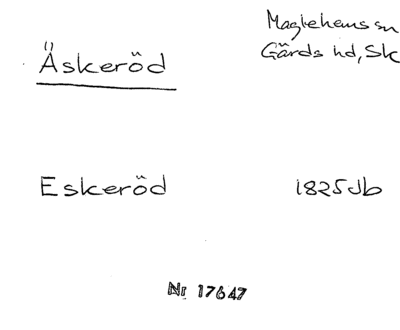 Äskeröd
Maglehems sn
Gärds hd, Sk
Eskeröd
1825 Jb
Nr 17647